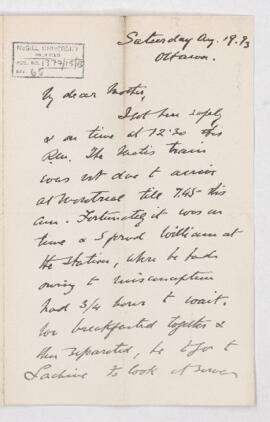 McGILL UNIVERSITY
ARCHIVES
ACC. NO. 1377/15/18
REF. 65
Saturday Aug. 19. 93
Ottawa.
My dear Mother,
I got here safely
& on time at 12:30 this
P.m. The train
was not due to arrive
at Montreal till 7.45 this
am. Fortunately it was on
time & I found William at
the Station, where he had
owing to misconception
had 3/4 hours to wait.
We breakfasted together &
then separated, he to go to
Lachine to look at